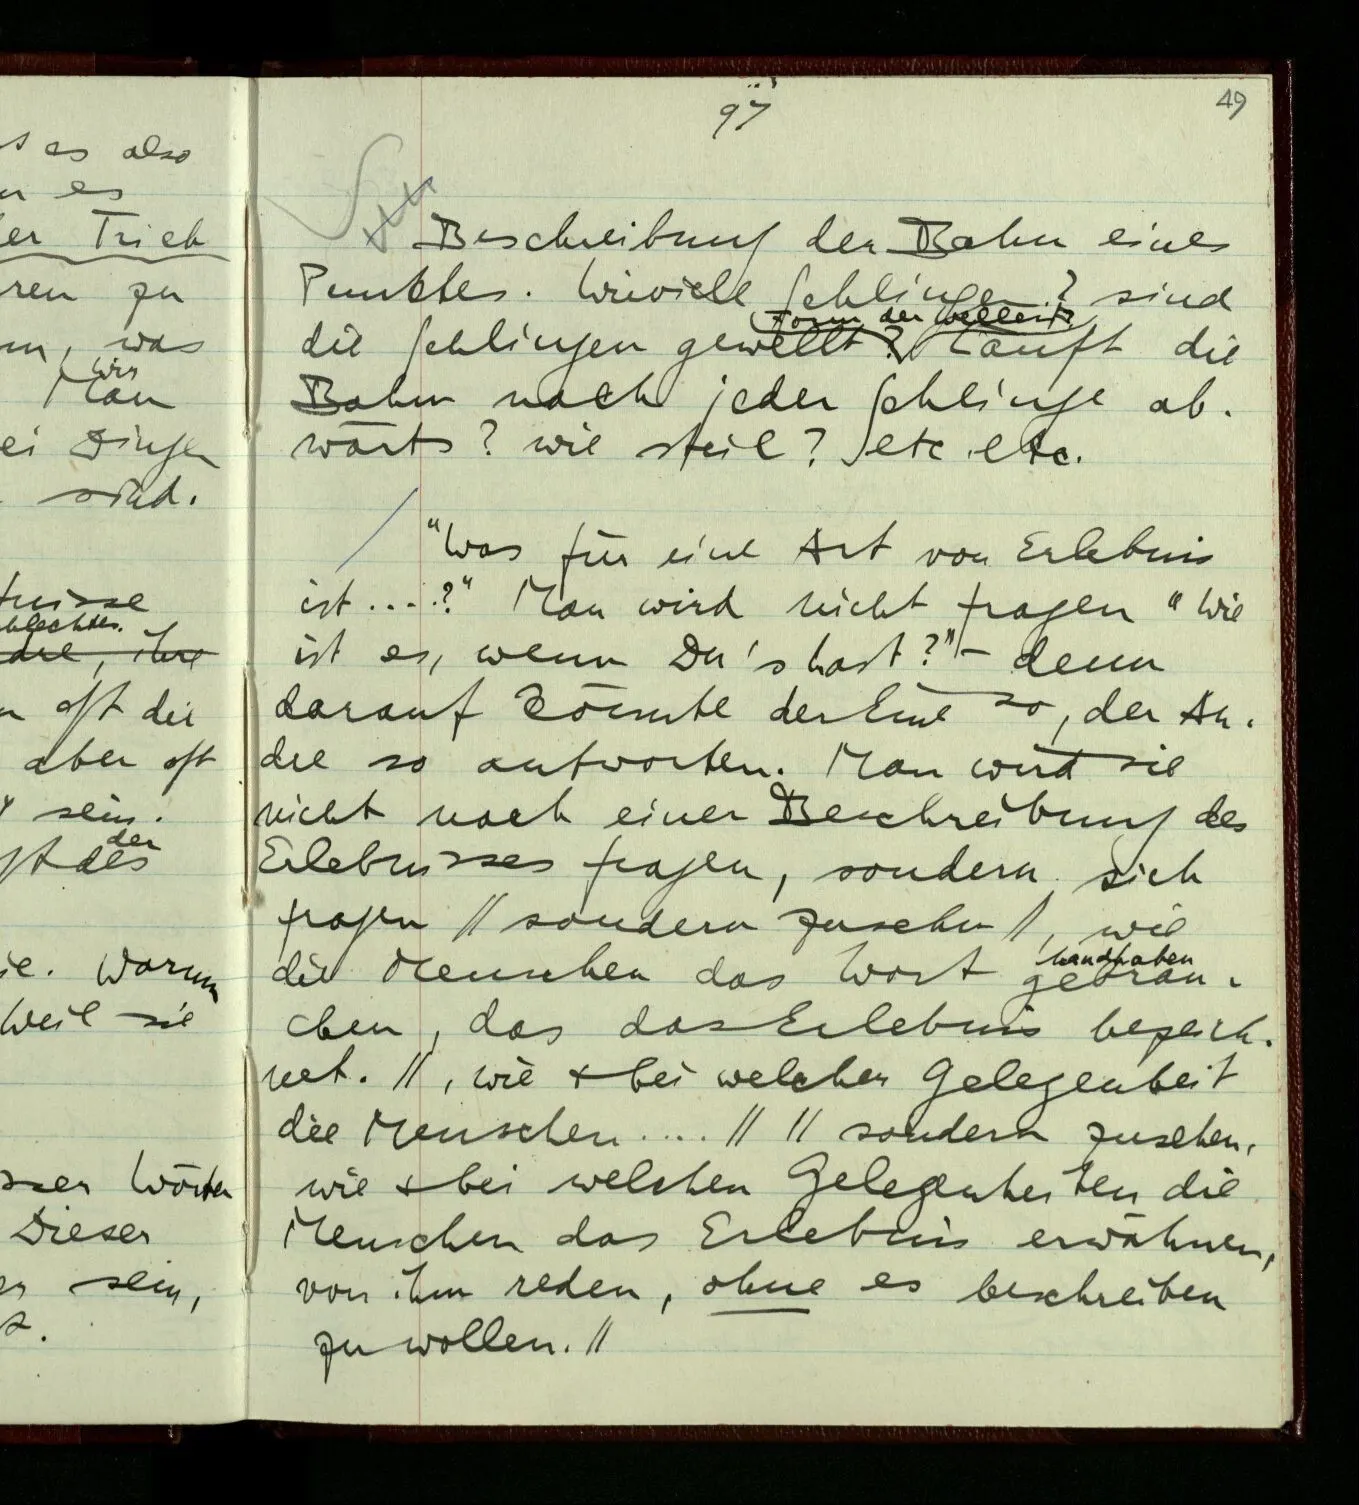 s es also
n es
er Trieb
ren zu
m, was
wir
Man
ei Dingen
sind.
schlechtes.
dre, ihre
n oft der
aber oft
sein.
der
des
ie. Warum
Weil sie
sser Wörter
Dieser
sein,
97
49
Beschreibung der Bahn eines
Punktes. Wieviele Schlingen? sind
Form der Wellen?
die Schlingen gewellt? Läuft die
Bahn nach jeder Schlinge ab-
wärts? wie steil? etc. etc.
"Was für eine Art von Erlebnis
ist ....?" Man wird nicht fragen "Wie
ist es, wenn Du's hast?" – denn
darauf könnte der Eine so, der An-
dre so antworten. Man wird sie
nicht nach einer Beschreibung des
Erlebnisses fragen, sondern sich
fragen // sondern zusehn //, wie
handhaben
die Menschen das Wort gebrau-
chen, das das Erlebnis bezeich-
net. //, wie & bei welcher Gelegenheit
die Menschen .... // // sondern zusehen,
wie & bei welchen Gelegenheiten die
Menschen das Erlebnis erwähnen,
von ihm reden, ohne es beschreiben
zu wollen. //